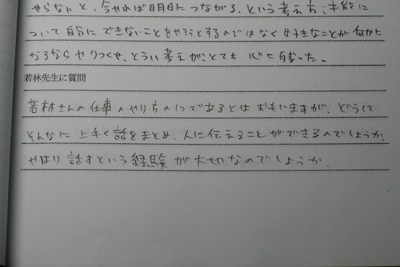 やらないと、今やれば明日につながる、という考え方、才能に
ついて自分にできないことをやろうとするのではなく好きなことが何かに
なるならやりつくせ、とういう考えがとても心に残った。
若林先生に質問
若林さんの仕事のやり方の1つであるとはおもいますが、どうして
そんなに上手く話をまとめ、人に伝えることができるのでしょうか。
やはり話すという経験が大切なのでしょうか。